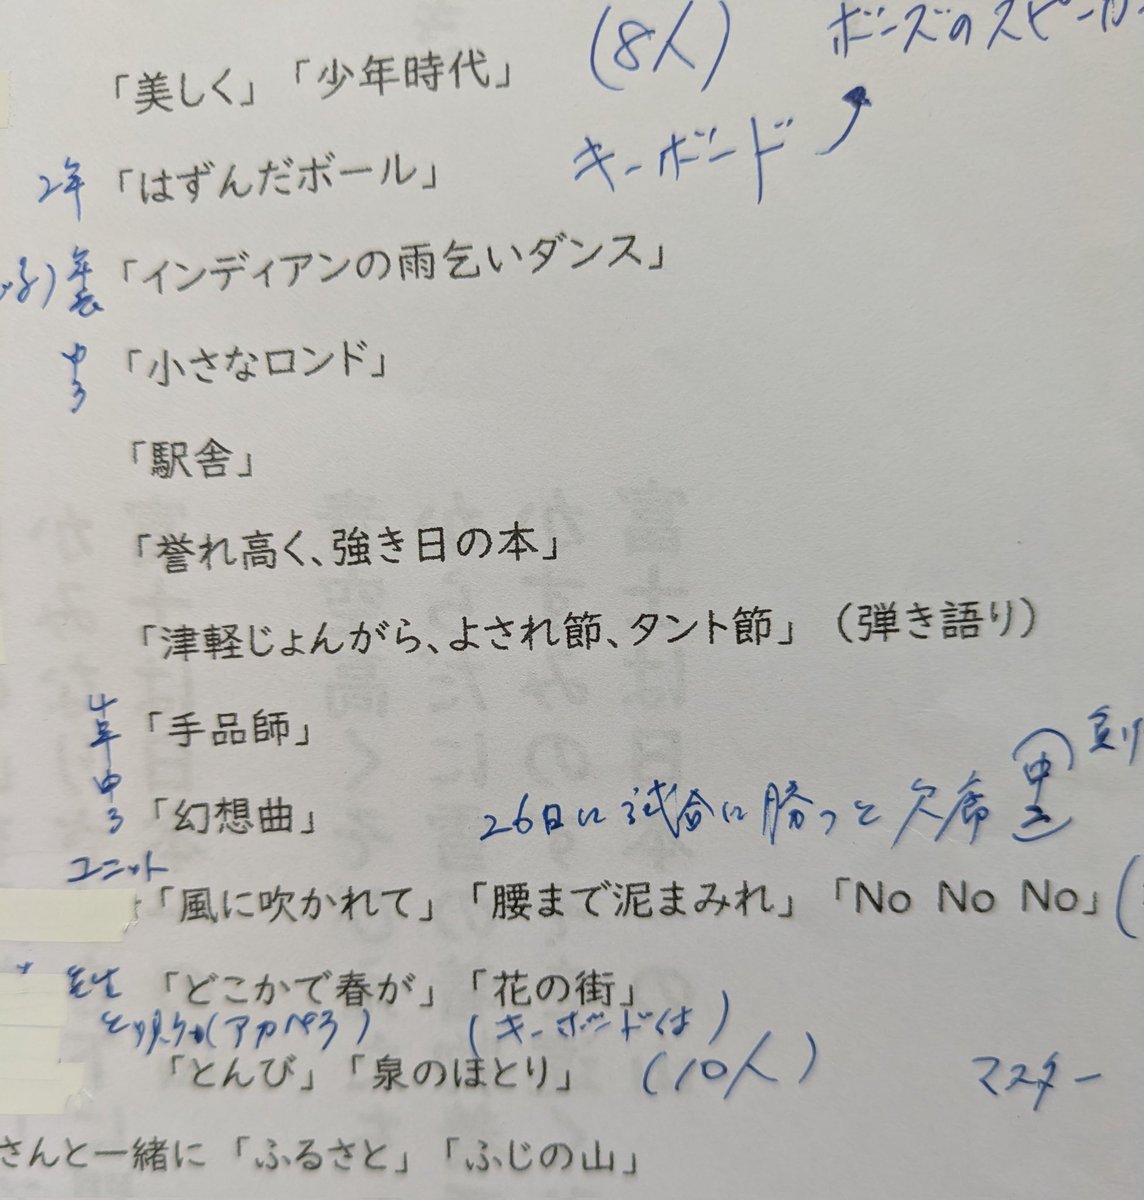 ボーズのスピーカー
「美しく」「少年時代」 (8人)
キーボード
2年 「はずんだボール」
年長 「インディアンの雨乞いダンス」
中3 「小さなロンド」
「駅舎」
「誉れ高く、強き日の本」
「津軽じょんがら、よされ節、タント節」 (弾き語り)
4年 「手品師」
中3 「幻想曲」 26日に試合に勝つと欠席
ユニット
「風に吹かれて」「腰まで泥まみれ」「No No No」(
「どこかで春が」「花の街」
(アカペラ) (キーボードくは)
「とんび」「泉のほとり」 (10人) マスター
さんと一緒に「ふるさと」「ふじの山」